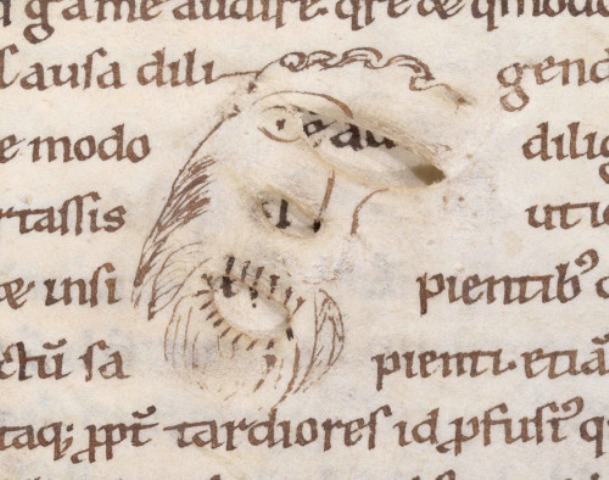 game audire. qre ⁊ qmodo
Causa dili gend
e modo dilig
rtassis uti
⁊ insi pientibꝰ
ctū sa pienti. etiā
taq; ꝓpt̄ tardiores id ꝓfusiꝰ q